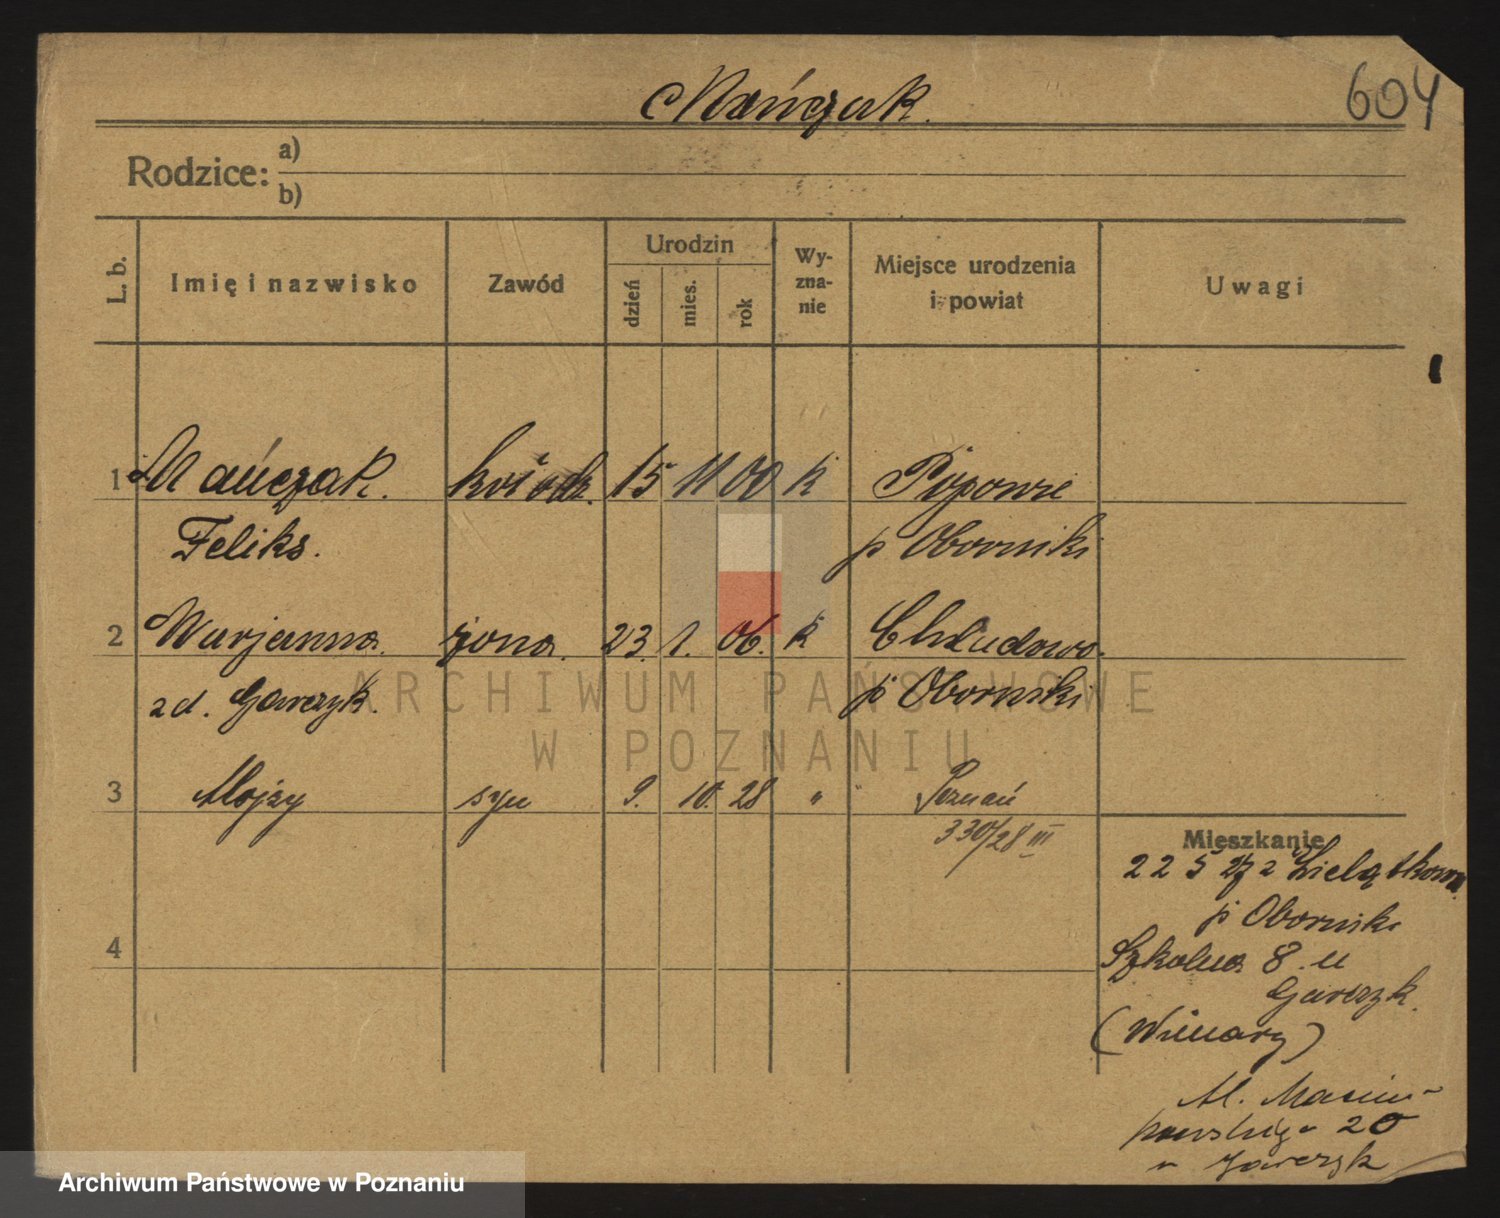 Mańczak.
604
Rodzice: a)
b)
L. b.
Imię i nazwisko
Zawód
Urodzin
dzień
mies.
rok
Wy-
zna-
nie
Miejsce urodzenia
i powiat
Uwagi
1 Mańczak. 15 11 00 k
Feliks. p Oborniki
2 Marjanna. żona. 23. 1. 06. k Chludowo.
z d. Gawczyk. p Oborniki
ARCHIWUM PAŃSTWOWE
W POZNANIU
3 Alojzy syn 9. 10. 28 " Poznań
330/28 III
Mieszkanie
22 5 27 z Zielątkowa
p Oborniki
4
Szkolna 8. u
Gawczyk.
(Winiary)
20
Archiwum Państwowe w Poznaniu